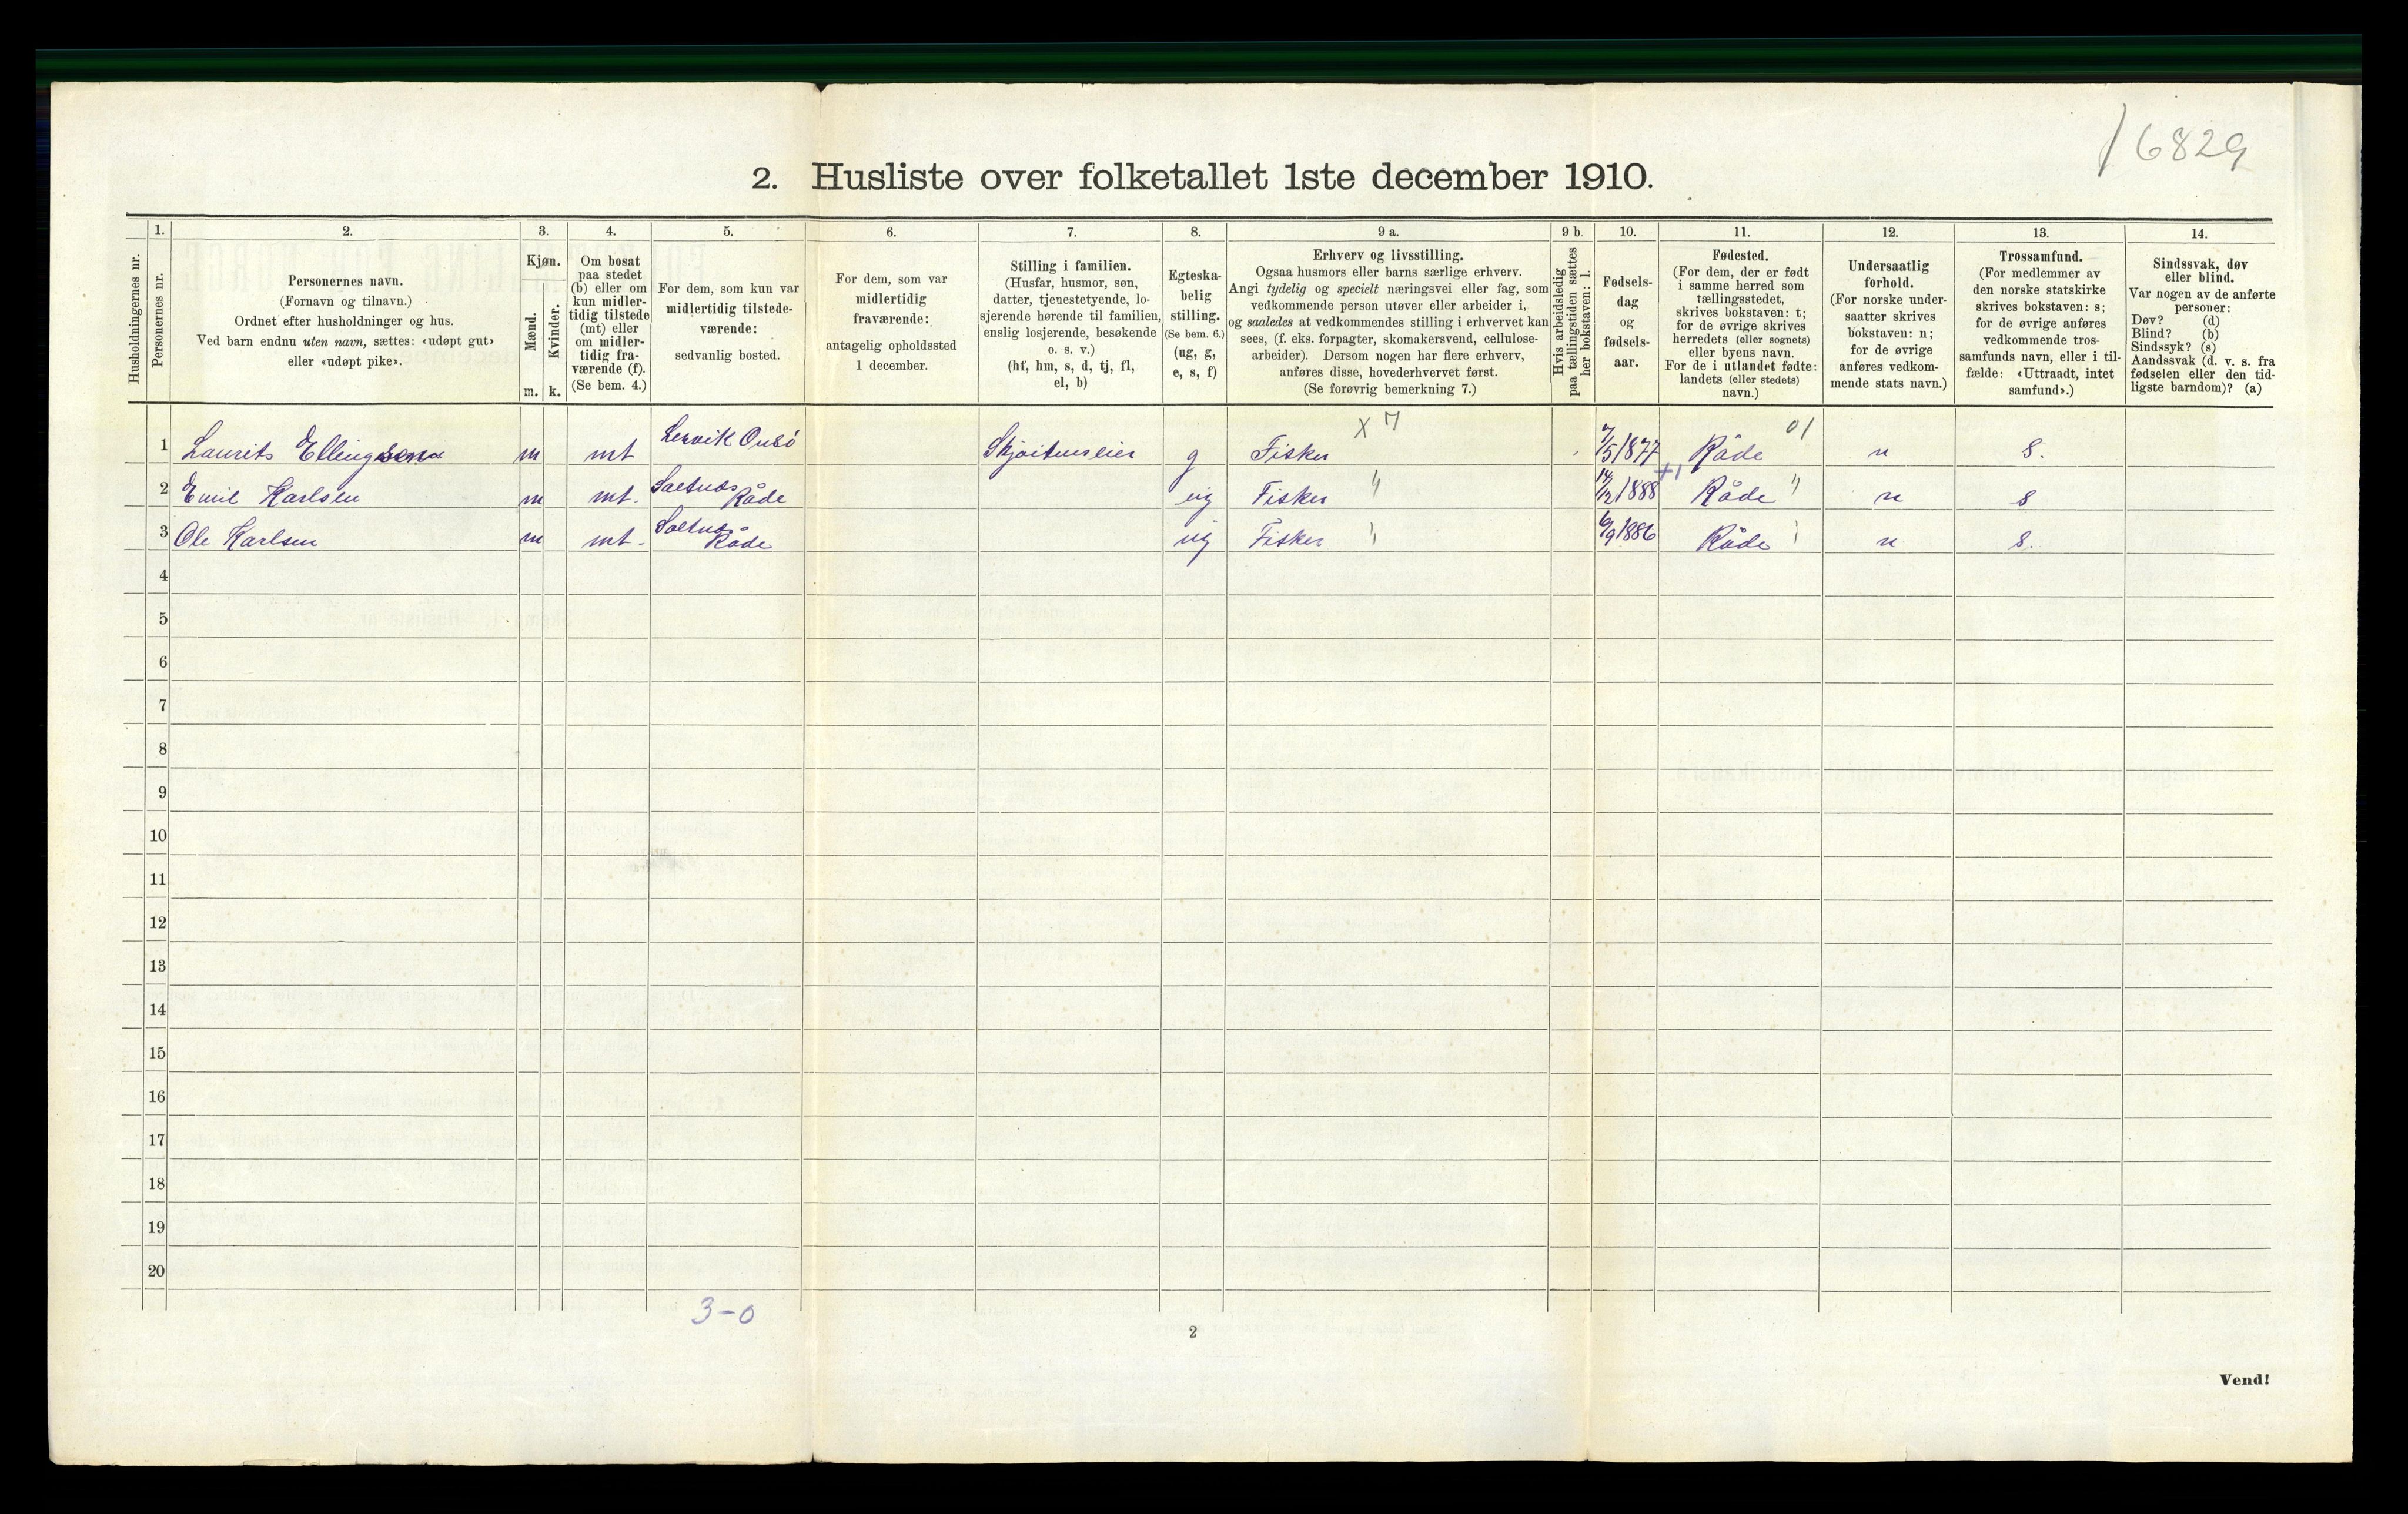 16829
2. Husliste over folketallet 1ste december 1910.
Husholdningernes nr.
1.
Personernes nr.
2.
Personernes navn.
(Fornavn og tilnavn.)
Ordnet efter husholdninger og hus.
Ved barn endnu uten navn, sættes: «udøpt gut»
eller «udøpt pike».
3.
Kjøn.
Mænd.
Kvinder.
m. k.
4.
Om bosat
paa stedet
(b) eller om
kun midler-
tidig tilstede
(mt) eller
om midler-
tidig fra-
værende (f).
(Se bem. 4.)
5.
For dem, som kun var
midlertidig tilstede-
værende:
sedvanlig bosted.
6.
For dem, som var
midlertidig
fraværende:
antagelig opholdssted
1 december.
7.
Stilling i familien.
(Husfar, husmor, søn,
datter, tjenestetyende, lo-
sjerende hørende til familien,
enslig losjerende, besøkende
o. s. v.)
(hf, hm, s, d, tj, fl,
el, b)
8.
Egteska-
belig
stilling.
(Se bem. 6.)
(ug, g,
e, s, f)
9 a.
Erhverv og livsstilling.
Ogsaa husmors eller barns særlige erhverv.
Angi tydelig og specielt næringsvei eller fag, som
vedkommende person utøver eller arbeider i,
og saaledes at vedkommendes stilling i erhvervet kan
sees, (f. eks. forpagter, skomakersvend, cellulose-
arbeider). Dersom nogen har flere erhverv,
anføres disse, hovederhvervet først.
(Se forøvrig bemerkning 7.)
9 b.
Hvis arbeidsledig
paa tællingstiden sættes
her bokstaven: l.
10.
Fødsels-
dag
og
fødsels-
aar.
11.
Fødested.
(For dem, der er født
i samme herred som
tællingsstedet,
skrives bokstaven: t;
for de øvrige skrives
herredets (eller sognets)
eller byens navn.
For de i utlandet fødte:
landets (eller stedets)
navn.)
12.
Undersaatlig
forhold.
(For norske under-
saatter skrives
bokstaven: n;
for de øvrige
anføres vedkom-
mende stats navn.)
13.
Trossamfund.
(For medlemmer av
den norske statskirke
skrives bokstaven: s;
for de øvrige anføres
vedkommende tros-
samfunds navn, eller i til-
fælde: «Uttraadt, intet
samfund».)
14.
Sindssvak, døv
eller blind.
Var nogen av de anførte
personer:
Døv? (d)
Blind? (b)
Sindssyk? (s)
Aandssvak (d. v. s. fra
fødselen eller den tid-
ligste barndom)? (a)
1 Laurits Ellingsen m mt Lervik Onsö Skjöiteseier g Fisker X 7 7/5 1877 Råde 01 n S.
2 Emil Karlsen m mt. Saltnes Råde ug Fisker " 14/2 1888 +1 Råde " n S
3 Ole Karlsen m mt. Saltnes Råde ug Fisker " 6/9 1886 Råde " n S.
4
5
6
7
8
9
10
11
12
13
14
15
16
17
18
19
20
3-0
2
Vend!